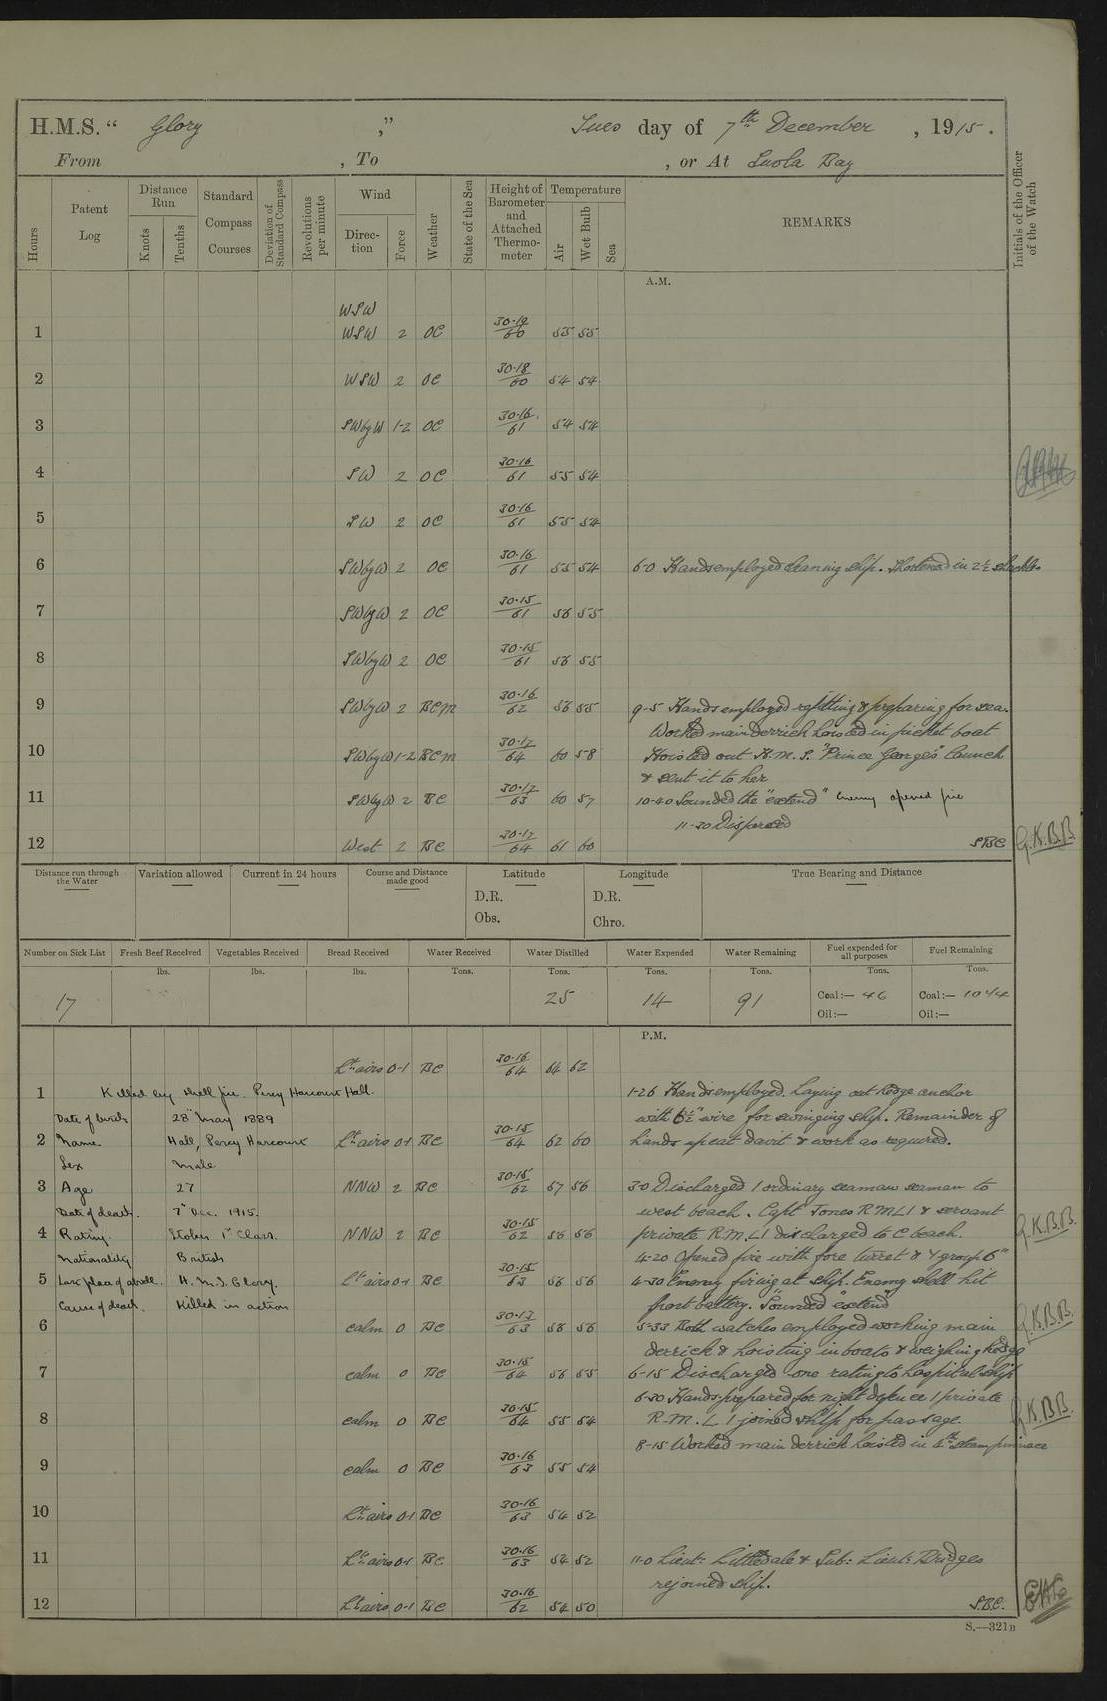 H.M.S. “ Glory ,” Tues day of 7th December , 1915 .
From , To , or At Suvla Bay
Hours
Patent Log
Distance Run
Knots
Tenths
Standard Compass Courses
Deviation of Standard Compass
Revolutions per minute
Wind
Direction
Force
Weather
State of the Sea
Height of Barometer and Attached Thermometer
Temperature
Air
Wet Bulb
Sea
REMARKS
Initials of the Officer of the Watch
A.M.
WSW
1 WSW 2 OC 30·19/60 55 55
2 WSW 2 OC 30·18/60 54 54
3 SWbyW 1-2 OC 30·16/61 54 54
4 SW 2 OC 30·16/61 55 54
5 SW 2 OC 30·16/61 55 54
6 SWbyW 2 OC 30·16/61 55 54 6-0 Hands employed cleaning ship. Shortened in 2½ shackles
7 SWbyW 2 OC 30·15/61 56 55
8 SWbyW 2 OC 30·15/61 56 55
9 SWbyW 2 BCM 30·16/62 56 55 9-5 Hands employed refitting & preparing for sea.
Worked main derrick hoisted in picket boat
10 SWbyW 1-2 BCM 30·17/64 60 58 Hoisted out H.M.S. "Prince George's" launch
& sent it to her
11 SWbyW 2 BC 30·17/63 60 57 10-40 Sounded the "extend" Enemy opened fire
11-30 Dispersed
12 West 2 BC 30·17/64 61 60 SBC G.K.B.B.
Distance run through the Water
Variation allowed
Current in 24 hours
Course and Distance made good
Latitude
D.R.
Obs.
Longitude
D.R.
Chro.
True Bearing and Distance
Number on Sick List
Fresh Beef Received
Vegetables Received
Bread Received
Water Received
Water Distilled
Water Expended
Water Remaining
Fuel expended for all purposes
Fuel Remaining
lbs. lbs. lbs. Tons. Tons. Tons. Tons. Tons. Tons.
17 25 14 91 Coal:— 46 Coal:— 1044
Oil:— Oil:—
P.M.
Lt airs 0-1 BC 30·16/64 64 62
1 Killed by shell fire. Percy Harcourt Hall. 1-26 Hands employed. Laying out kedge anchor
Date of birth 28th May 1889 with 6½" wire for swinging ship. Remainder of
2 Name Hall, Percy Harcourt Lt airs 0-1 BC 30·15/64 62 60 hands upeat davit & work as required.
Sex Male
3 Age 27 NNW 2 BC 30·15/62 57 56 3-0 Discharged 1 ordinary seaman seaman to
Date of death. 7th Dec. 1915. west beach. Capt Jones RMLI & servant
4 Rating. Stoker 1st Class. NNW 2 BC 30·15/62 56 56 private R.M.L.I discharged to C beach. G.K.B.B.
Nationality British 4-20 Opened fire with fore turret & Y group 6"
5 Last place of abode. H.M.S. Glory. Lt airs 0-1 BC 30·15/63 56 56 4-30 Enemy firing at ship. Enemy shell hit
Cause of death. Killed in action port battery. Sounded "extend"
6 calm 0 BC 30·17/63 56 56 5-33 Both watches employed working main G.K.B.B.
derrick & hoisting in boats & weighing kedge
7 calm 0 BC 30·15/64 56 55 6-15 Discharged one rating to hospital ship
6-30 Hands prepared for night defence 1 private
8 calm 0 BC 30·15/64 55 54 R.M.L.I joined ship for passage. G.K.B.B.
8-15 Worked main derrick hoisted in steam pinnace
9 calm 0 BC 30·16/63 55 54
10 Lt airs 0-1 BC 30·16/63 54 52
11 Lt airs 0-1 BC 30·16/63 54 52 11-0 Lieut: Littledale & Sub: Lieut: Bridges
rejoined ship.
12 Lt airs 0-1 BC 30·16/62 54 50 S.B.C.
S.—321B